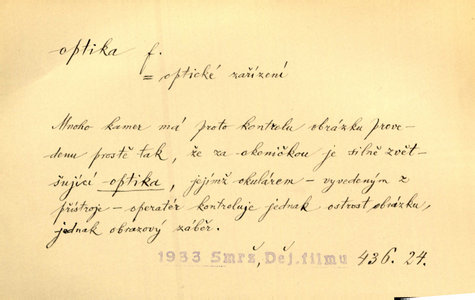 optika f.
= optické zařízení
Mnoho kamer má proto kontrolu obrázku prove-
denu prostě tak, že za okeničkou je silně zvět-
šující optika, jejímž okulárem - vyvedeným z
přístroje - operatér kontroluje jednak ostrost obrázku,
jednak obrazový záběr.
1933 Smrž, Děj. filmu 436. 24.